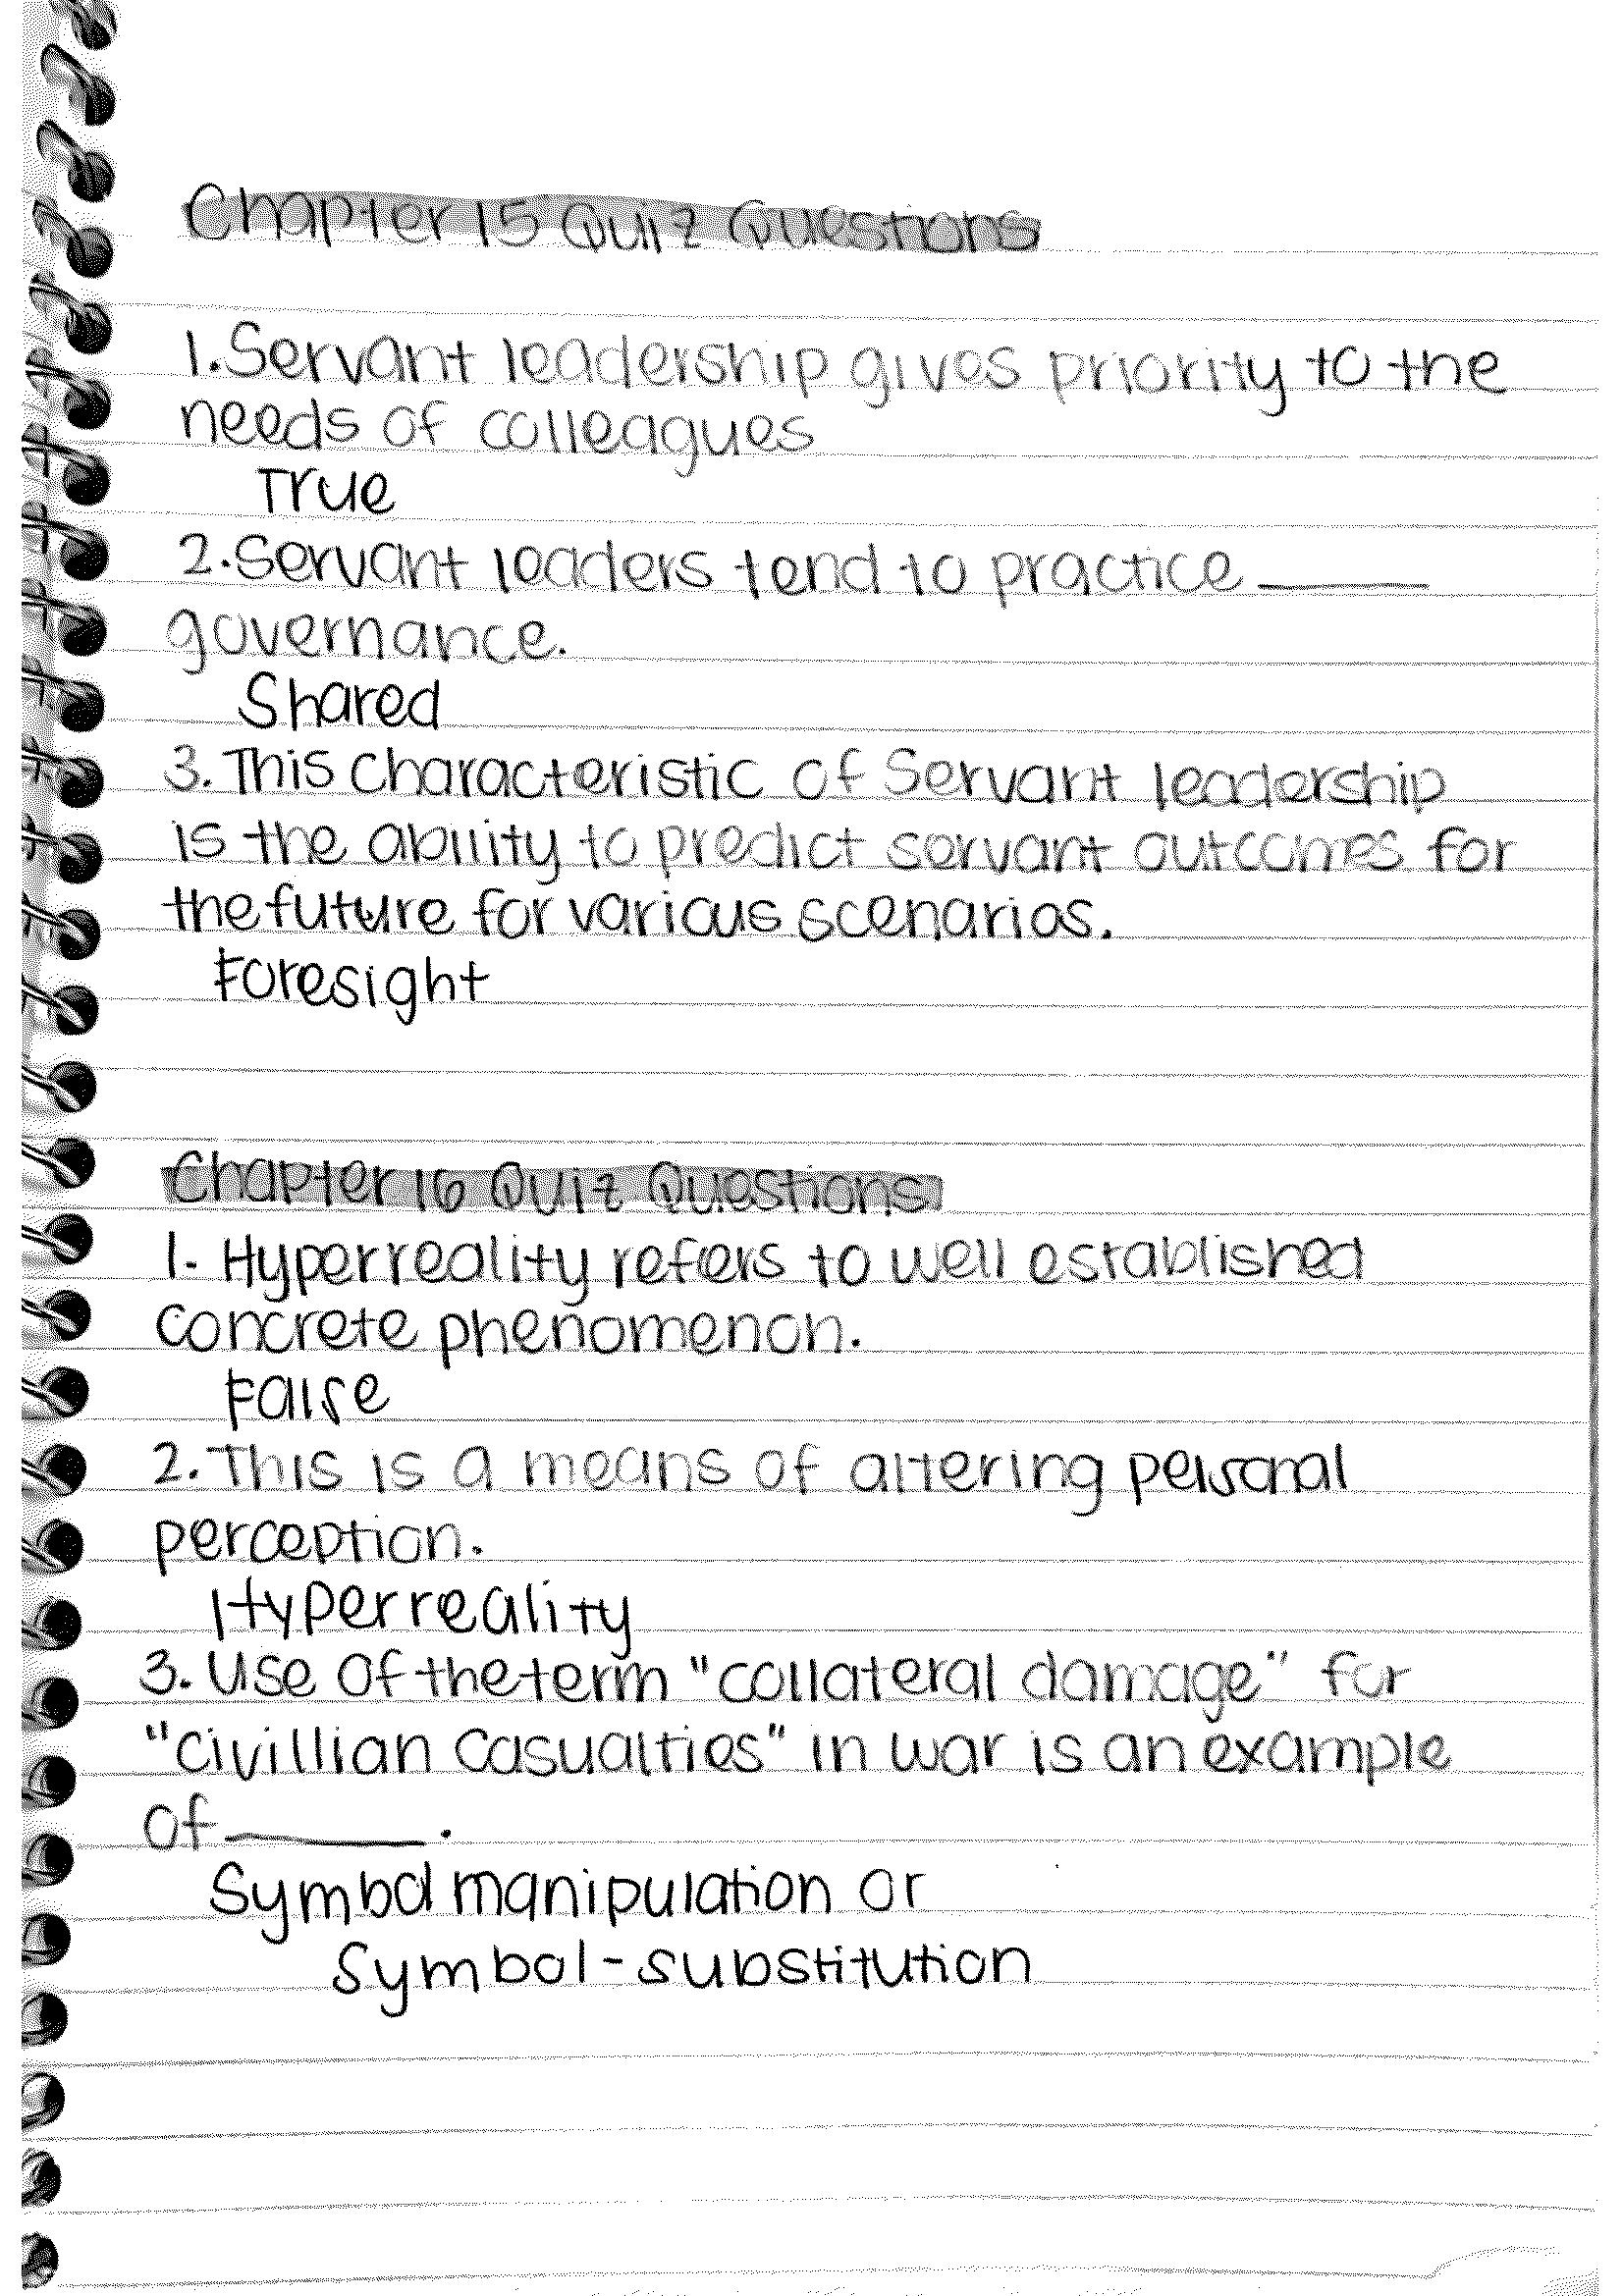 Chapter 15 Quiz Questions
1. Servant leadership gives priority to the
needs of colleagues
True
2. Servant leaders tend to practice ____
governance.
Shared
3. This characteristic of Servant leadership
is the ability to predict servant outcomes for
the future for various scenarios.
Foresight
Chapter 16 Quiz Questions
1. Hyperreality refers to well established
concrete phenomenon.
False
2. This is a means of altering personal
perception.
Hyperreality
3. Use of the term "collateral damage" for
"civillian casualties" in war is an example
of ____.
Symbol manipulation or
Symbol-substitution